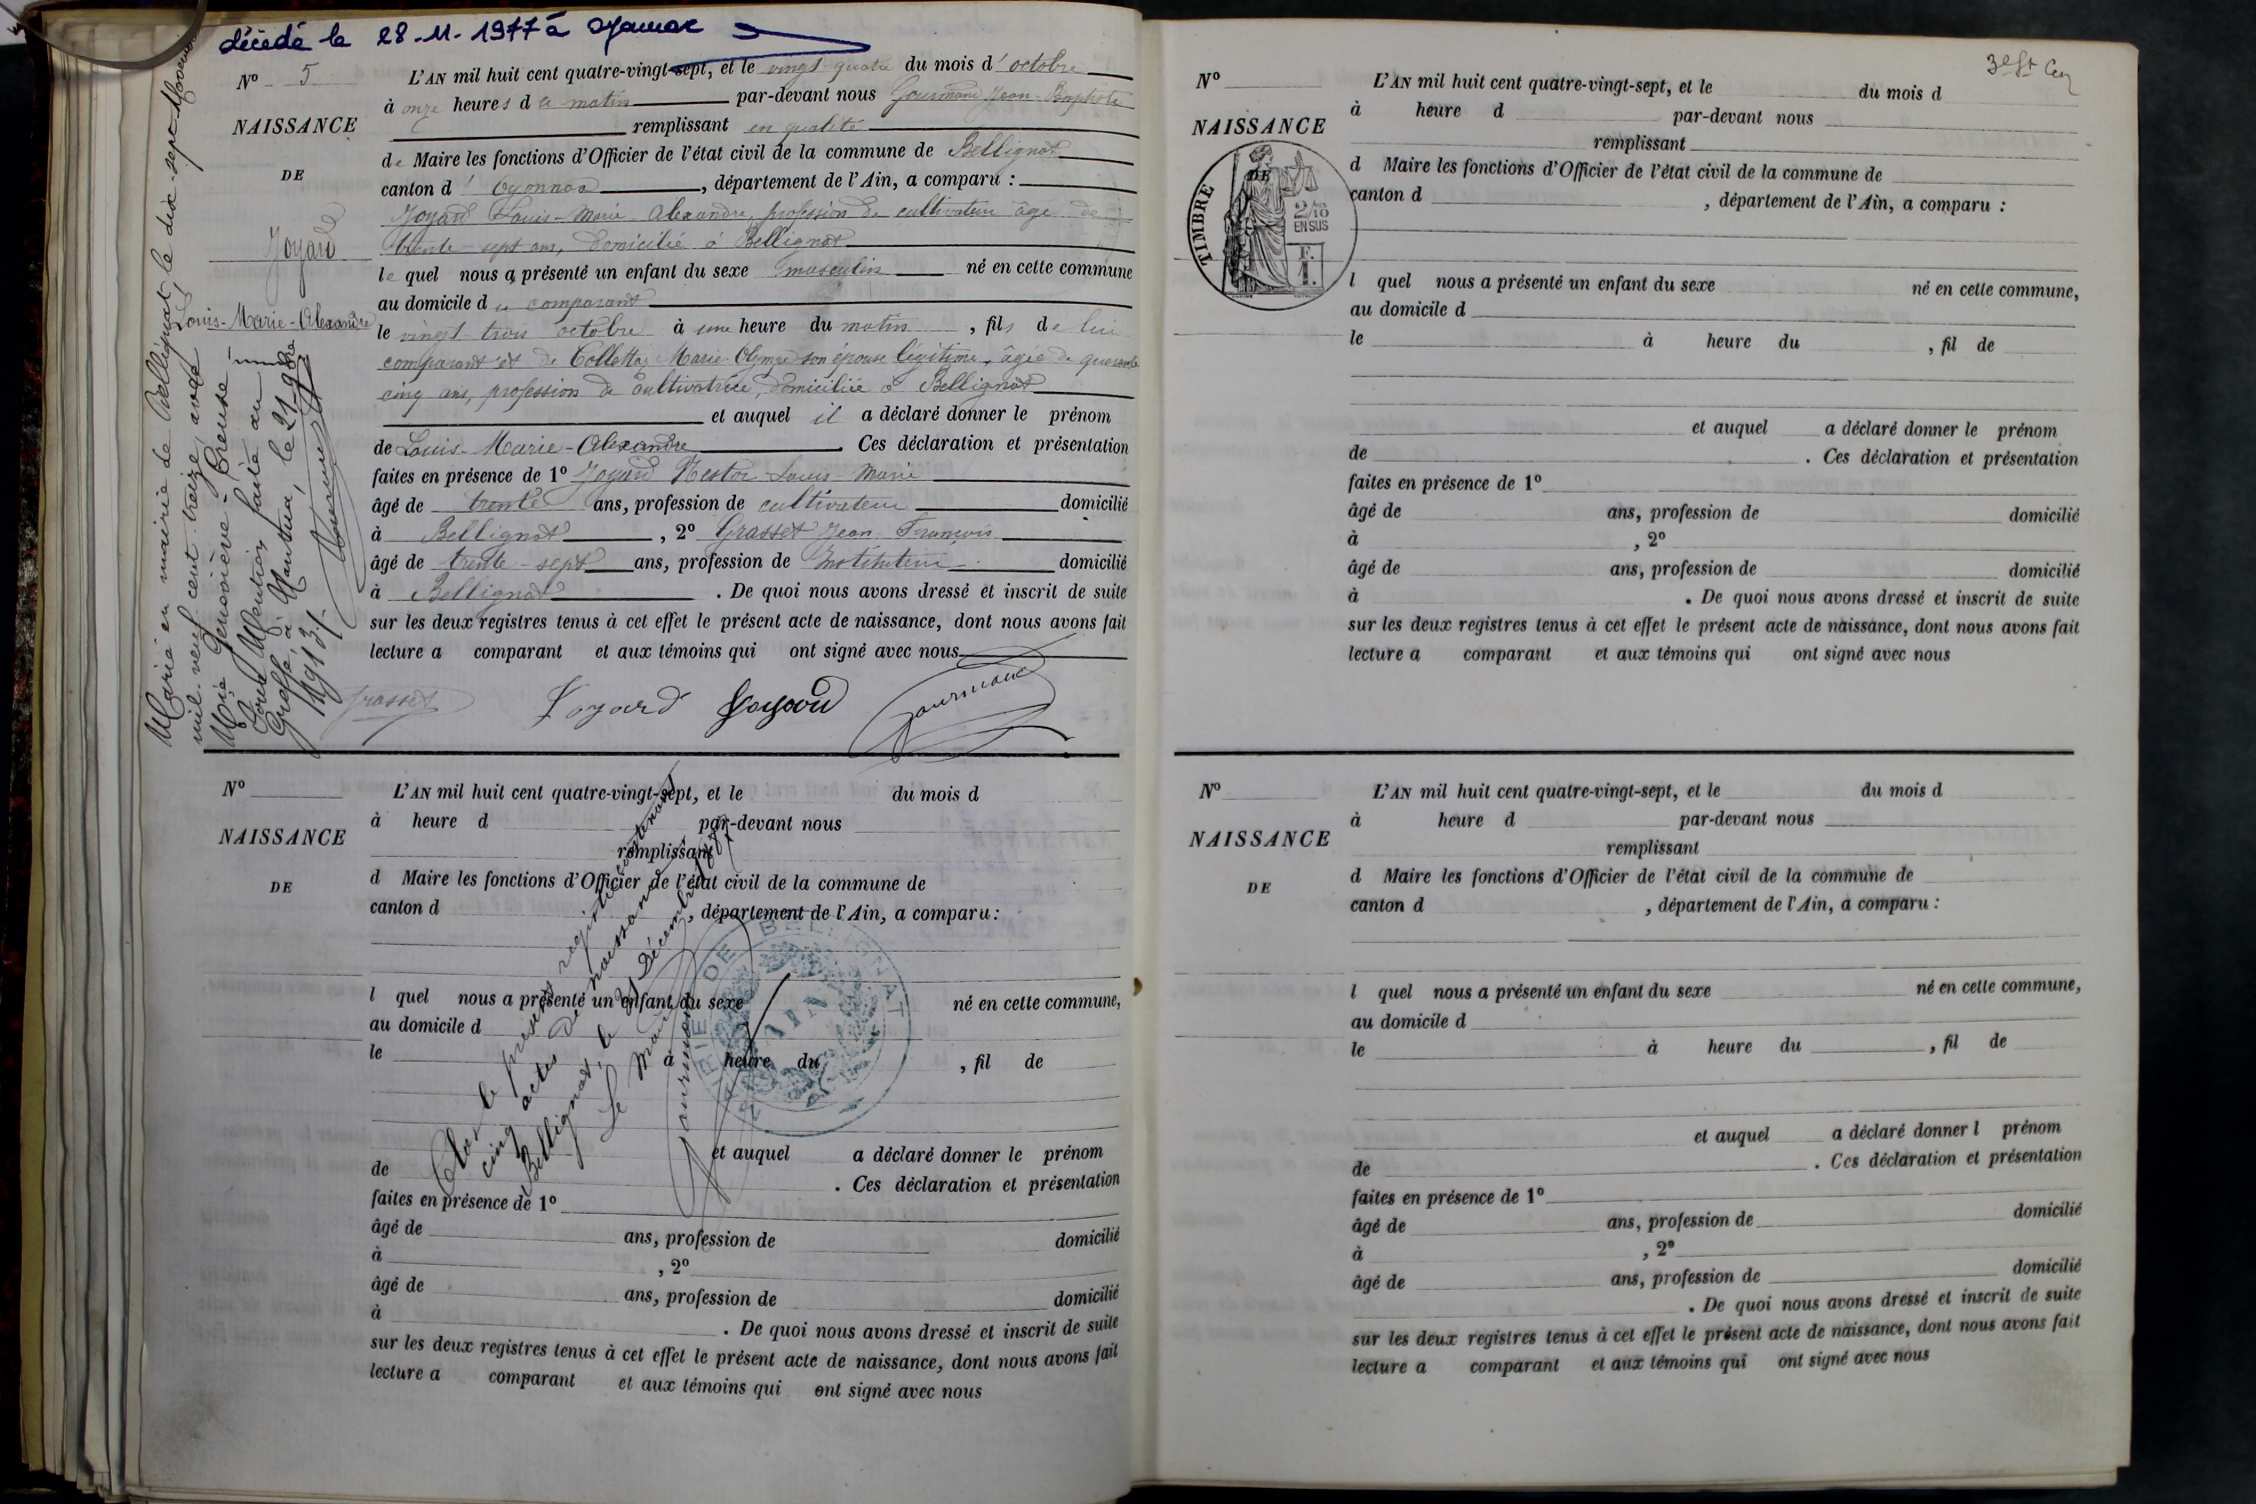 décédé le 28-11-1977 à Oyonnax
Nº 5
NAISSANCE
DE
Joyard
Louis-Marie-Alexandre
Marié en mairie de Bellignat le dix-sept
mil neuf cent treize avec
Marie Geneviève Preneuse
Pour Mention faite au
Greffe, à Nantua, le 21 9bre
1913 /.
L'AN mil huit cent quatre-vingt-sept, et le vingt quatre du mois d'octobre
à onze heures du matin par-devant nous Gourmand Jean-Baptiste
remplissant en qualité
de Maire les fonctions d'Officier de l'état civil de la commune de Bellignat
canton d'Oyonnax, département de l'Ain, a comparu :
Joyard Louis-Marie-Alexandre, profession de cultivateur âgé de
trente-sept ans, domicilié à Bellignat
lequel nous a présenté un enfant du sexe masculin né en cette commune
au domicile du comparant
le vingt trois octobre à une heure du matin, fils de lui
comparant et de Collettaz Marie Olympe son épouse légitime, âgée de quarante
cinq ans, profession de cultivatrice, domiciliée à Bellignat
et auquel il a déclaré donner le prénom
de Louis-Marie-Alexandre. Ces déclaration et présentation
faites en présence de 1º Joyard Nestor Louis Marie
âgé de trente ans, profession de cultivateur domicilié
à Bellignat, 2º Grasset Jean François
âgé de trente-sept ans, profession de Instituteur domicilié
à Bellignat. De quoi nous avons dressé et inscrit de suite
sur les deux registres tenus à cet effet le présent acte de naissance, dont nous avons fait
lecture a comparant et aux témoins qui ont signé avec nous
Grasset Joyard Joyard Gourmand
Nº
NAISSANCE
DE
L'AN mil huit cent quatre-vingt-sept, et le du mois d
à heure d par-devant nous
remplissant
d Maire les fonctions d'Officier de l'état civil de la commune de
canton d , département de l'Ain, a comparu :
l quel nous a présenté un enfant du sexe né en cette commune,
au domicile d
le à heure du , fil de
et auquel a déclaré donner le prénom
de . Ces déclaration et présentation
faites en présence de 1º
âgé de ans, profession de domicilié
à , 2º
âgé de ans, profession de domicilié
à . De quoi nous avons dressé et inscrit de suite
sur les deux registres tenus à cet effet le présent acte de naissance, dont nous avons fait
lecture a comparant et aux témoins qui ont signé avec nous
Clos le présent registre contenant
cinq actes de naissance à
Bellignat, le 31 Décembre 1887
Le Maire
Gourmand
MAIRIE DE BELLIGNAT
AIN
3e et
Nº
NAISSANCE
DE
TIMBRE
2/10
EN SUS
F.
1.
L'AN mil huit cent quatre-vingt-sept, et le du mois d
à heure d par-devant nous
remplissant
d Maire les fonctions d'Officier de l'état civil de la commune de
canton d , département de l'Ain, a comparu :
l quel nous a présenté un enfant du sexe né en cette commune,
au domicile d
le à heure du , fil de
et auquel a déclaré donner le prénom
de . Ces déclaration et présentation
faites en présence de 1º
âgé de ans, profession de domicilié
à , 2º
âgé de ans, profession de domicilié
à . De quoi nous avons dressé et inscrit de suite
sur les deux registres tenus à cet effet le présent acte de naissance, dont nous avons fait
lecture a comparant et aux témoins qui ont signé avec nous
Nº
NAISSANCE
DE
L'AN mil huit cent quatre-vingt-sept, et le du mois d
à heure d par-devant nous
remplissant
d Maire les fonctions d'Officier de l'état civil de la commune de
canton d , département de l'Ain, a comparu :
l quel nous a présenté un enfant du sexe né en cette commune,
au domicile d
le à heure du , fil de
et auquel a déclaré donner l prénom
de . Ces déclaration et présentation
faites en présence de 1º
âgé de ans, profession de domicilié
à , 2º
âgé de ans, profession de domicilié
. De quoi nous avons dressé et inscrit de suite
sur les deux registres tenus à cet effet le présent acte de naissance, dont nous avons fait
lecture a comparant et aux témoins qui ont signé avec nous